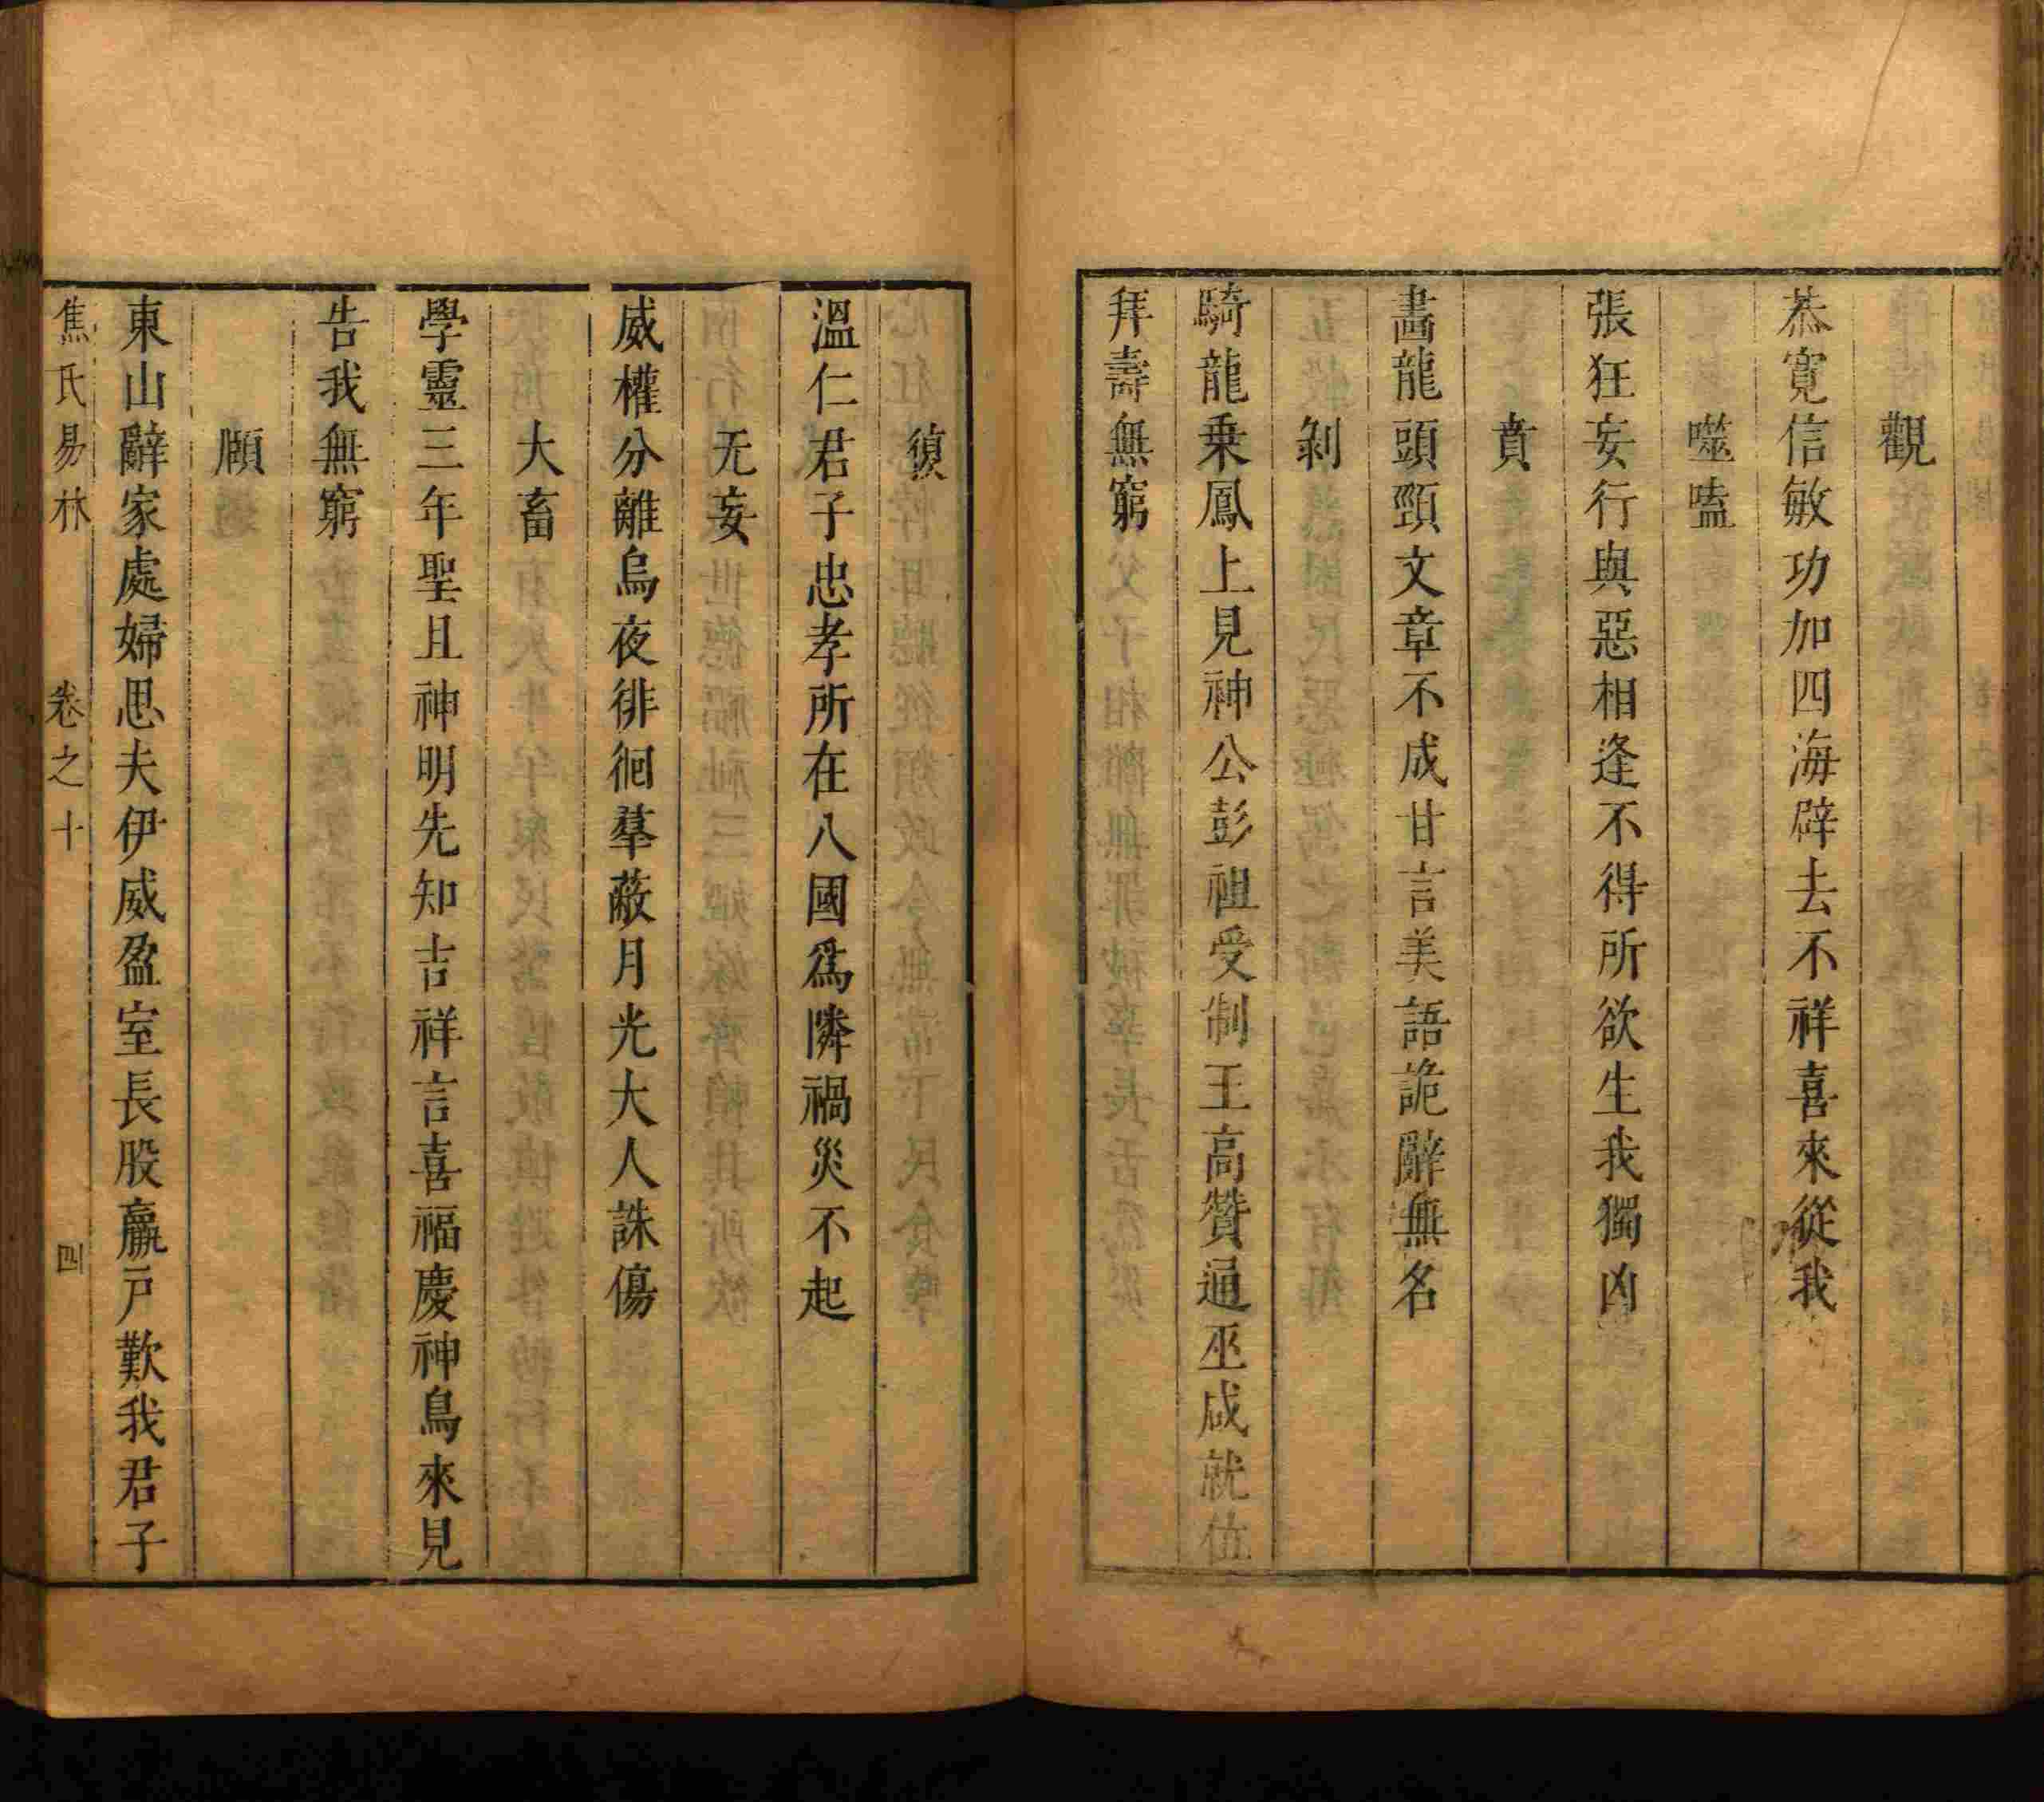 觀
恭寬信敏功加四海辟去不祥喜來從我
噬嗑
張狂妄行與惡相逢不得所欲生我獨凶
賁
畵龍頭頸文章不成甘言美語詭辭無名
剝
騎龍乗鳳上見神公彭祖受制王高贊通巫咸就位
拜壽無窮
復
溫仁君子忠孝所在八國爲隣禍災不起
无妄
威權分離烏夜徘徊羣蔽月光大人誅傷
大畜
學靈三年聖且神明先知吉祥言喜福慶神鳥來見
告我無窮
頤
東山辭家處婦思夫伊威盈室長股羸戸歎我君子
焦氏易林 卷之十 四